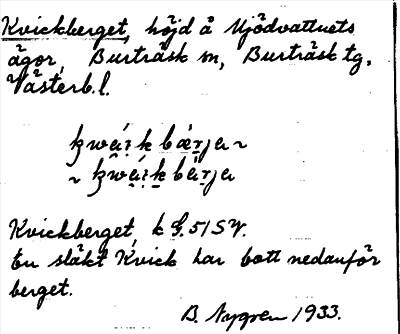 Kvickberget, höjd å Mjödvattnets
ägor, Burträsk sn, Burträsk tg,
Västerb.l.
Kvickberget, k G.51SV.
En släkt Kvick har bott nedanför
berget.
B. Nygren 1933.